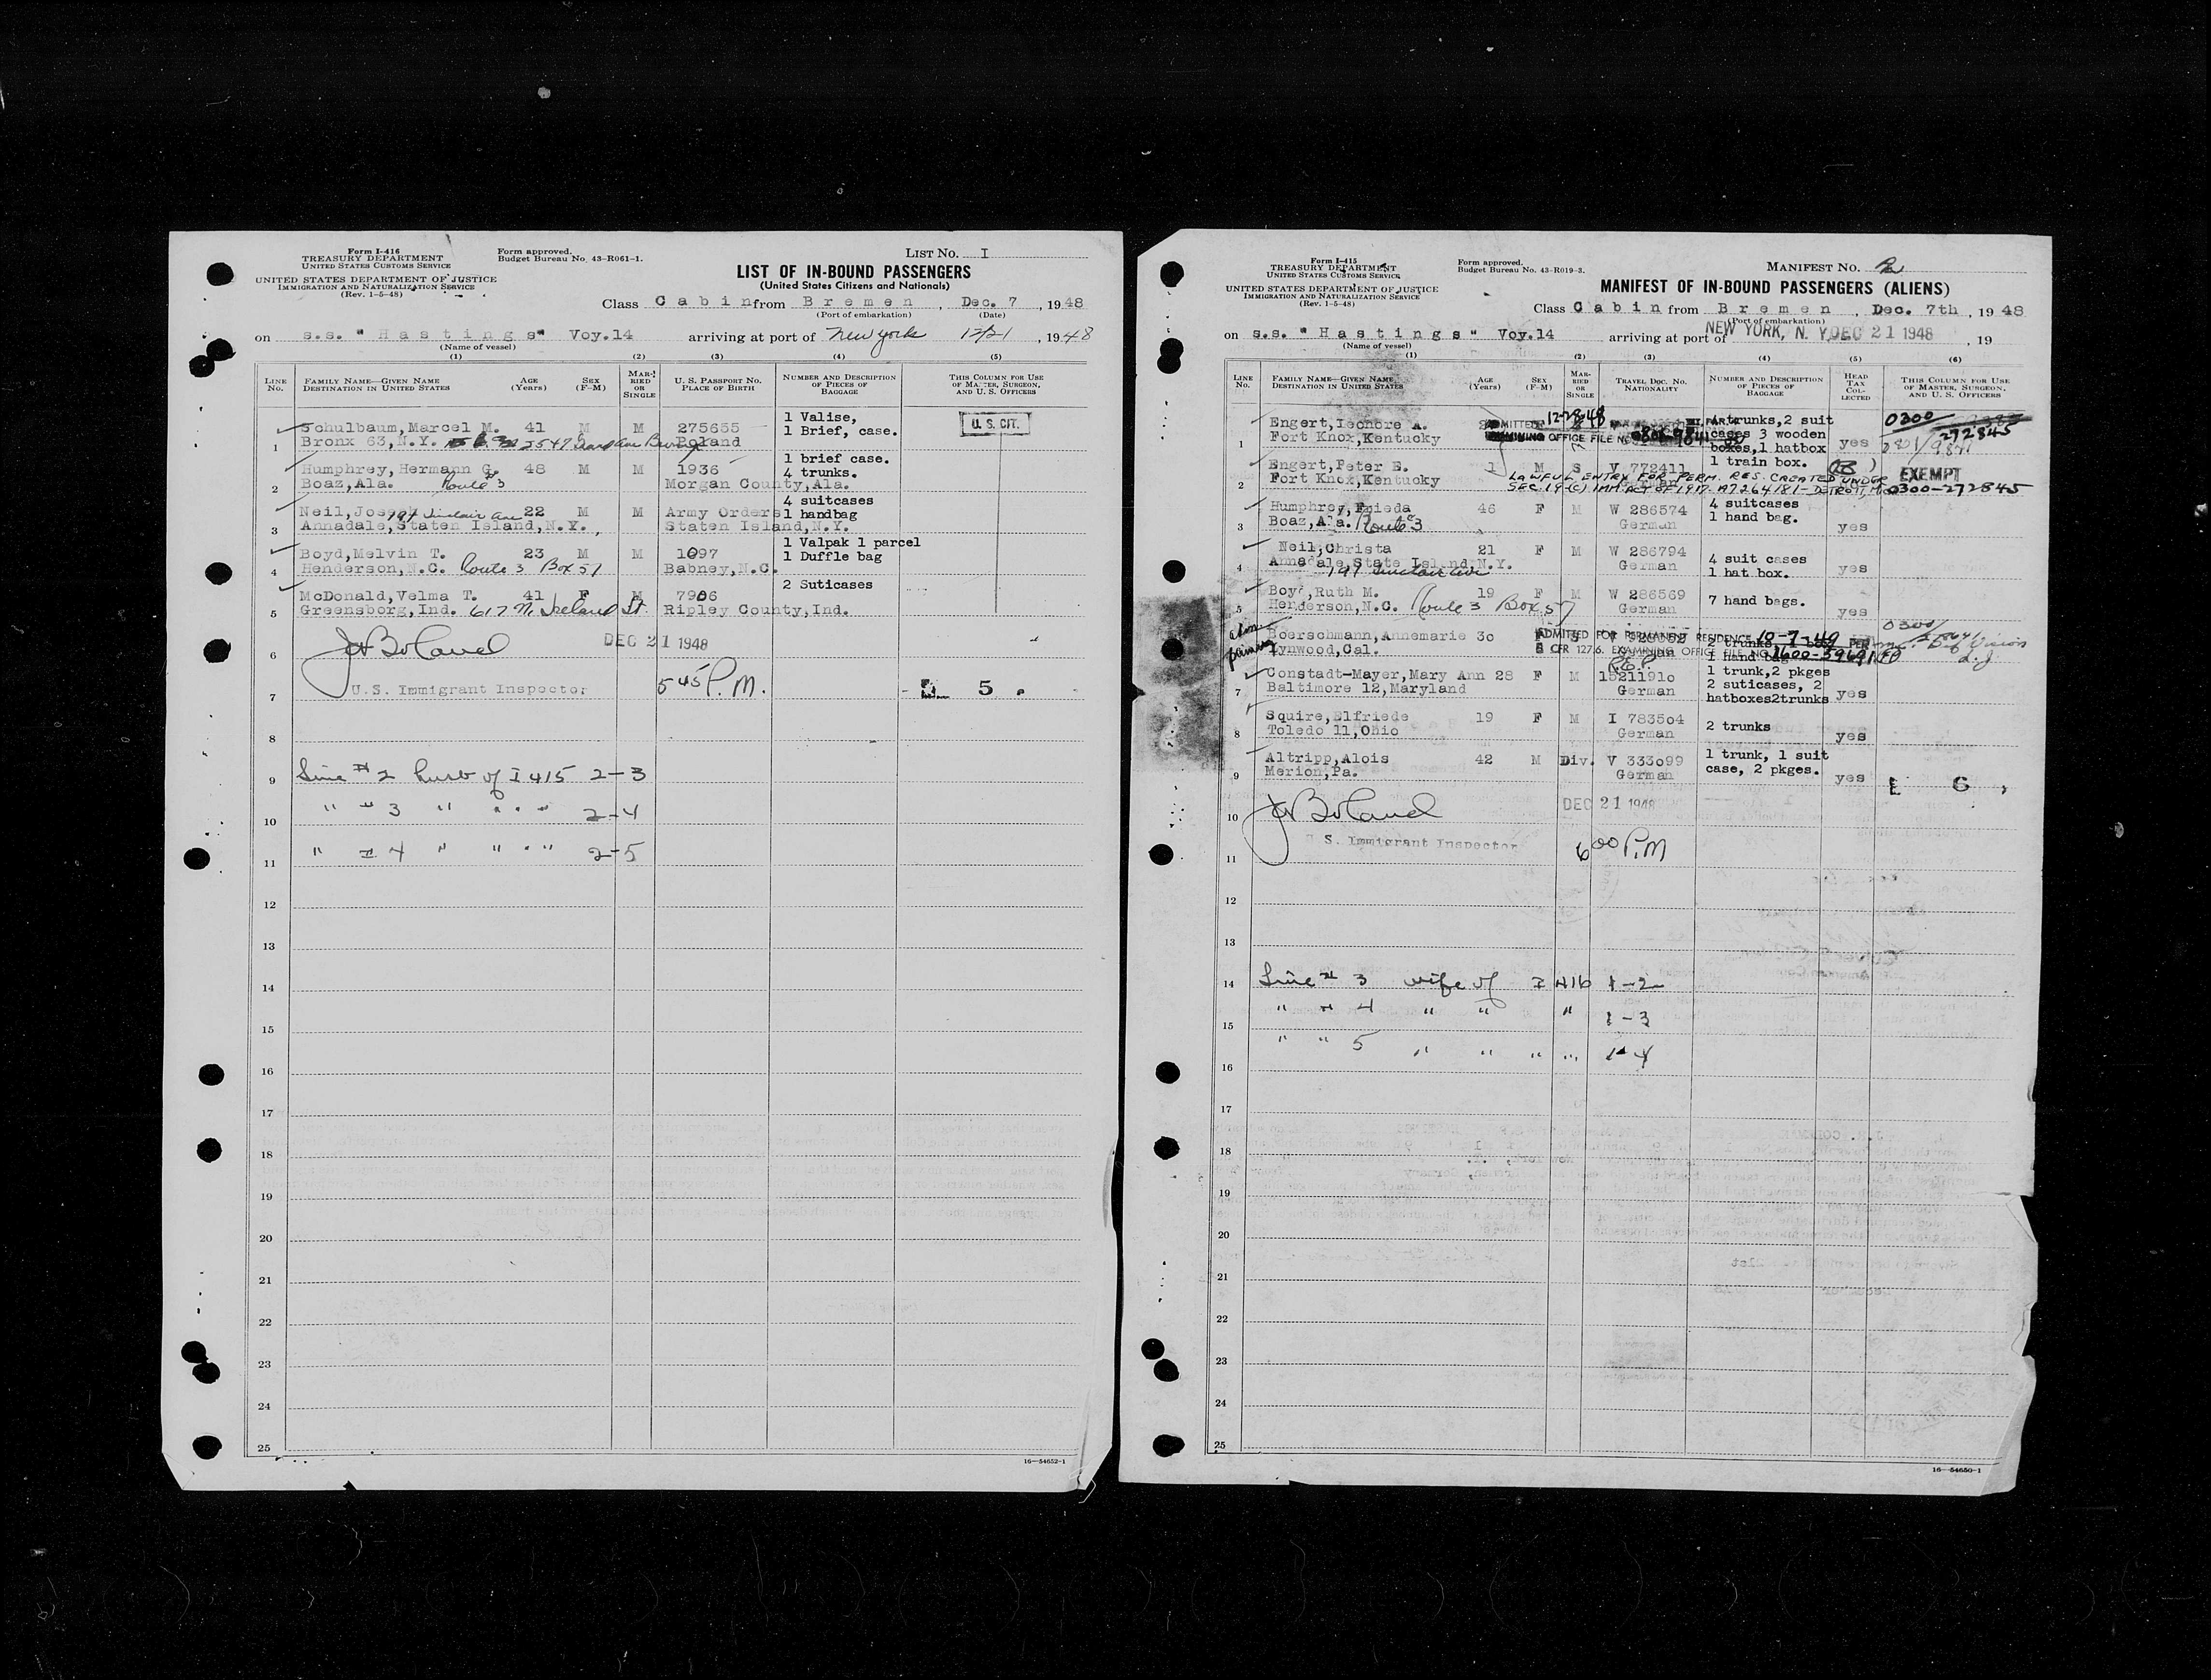 Form I-416
TREASURY DEPARTMENT
UNITED STATES CUSTOMS SERVICE
UNITED STATES DEPARTMENT OF JUSTICE
IMMIGRATION AND NATURALIZATION SERVICE
(Rev. 1-5-48)
Form approved.
Budget Bureau No. 43-R061-1.
LIST No. I
LIST OF IN-BOUND PASSENGERS
(United States Citizens and Nationals)
Class Cabin from Bremen, Dec. 7, 1948
(Port of embarkation) (Date)
on s.s. "Hastings" Voy.14 arriving at port of New York 12/21, 1948
(Name of vessel)
(1) (2) (3) (4) (5)
LINE No. FAMILY NAME—GIVEN NAME DESTINATION IN UNITED STATES AGE (Years) SEX (F-M) MARRIED OR SINGLE U. S. PASSPORT No. PLACE OF BIRTH NUMBER AND DESCRIPTION OF PIECES OF BAGGAGE THIS COLUMN FOR USE OF MASTER, SURGEON, AND U. S. OFFICERS
1 Schulbaum, Marcel M. 41 M M 275655 1 Valise, 1 Brief, case. U. S. CIT.
Bronx 63, N.Y. Poland
2 Humphrey, Hermann G. 48 M M 1936 1 brief case. 4 trunks.
Boaz, Ala. Route #3 Morgan County, Ala.
3 Neil, Jos 22 M M Army Orders 4 suitcases 1 handbag
197 Sinclair Ave
Annadale, Staten Island, N.Y. Staten Island, N.Y.
4 Boyd, Melvin T. 23 M M 1097 1 Valpak 1 parcel 1 Duffle bag
Henderson, N.C. Route 3 Box 57 Babney, N.C.
5 McDonald, Velma T. 41 F M 7906 2 Suticases
Greensborg, Ind. 617 N. Ireland St. Ripley County, Ind.
6 DEC 21 1948
7 U.S. Immigrant Inspector 5 45 P.M. 5.
8
9 Line #2 husb of I 415 2-3
10 " #3 " " " " 2-4
11 " #4 " " " " 2-5
12
13
14
15
16
17
18
19
20
21
22
23
24
25
16—54652-1
Form I-415
TREASURY DEPARTMENT
UNITED STATES CUSTOMS SERVICE
UNITED STATES DEPARTMENT OF JUSTICE
IMMIGRATION AND NATURALIZATION SERVICE
(Rev. 1-5-48)
Form approved.
Budget Bureau No. 43-R019-3.
MANIFEST No.
MANIFEST OF IN-BOUND PASSENGERS (ALIENS)
Class Cabin from Bremen, Dec. 7th, 1948
(Port of embarkation)
on s.s. "Hastings" Voy.14 arriving at port of NEW YORK, N. Y. DEC 21 1948, 19
(Name of vessel)
(1) (2) (3) (4) (5) (6)
LINE No. FAMILY NAME—GIVEN NAME DESTINATION IN UNITED STATES AGE (Years) SEX (F-M) MARRIED OR SINGLE TRAVEL DOC. No. NATIONALITY NUMBER AND DESCRIPTION OF PIECES OF BAGGAGE HEAD TAX COLLECTED THIS COLUMN FOR USE OF MASTER, SURGEON, AND U. S. OFFICERS
1 Engert, Leonore A. 12-28-48 4 trunks, 2 suit cases 3 wooden boxes, 1 hatbox yes 0300 272845
Fort Knox, Kentucky OFFICE FILE
2 Engert, Peter E. 1 M S V 772411 1 train box. EXEMPT
Fort Knox, Kentucky
LAWFUL ENTRY FOR PERM. RES. CREATED UNDER
SEC. 19-(C) IMM ACT OF 1917. A7264181-DETROIT, M 0300-272845
3 Humphrey, Frieda 46 F M W 286574 4 suitcases 1 hand bag. yes
Boaz, Ala. Route #3 German
4 Neil, Christa 21 F M W 286794 4 suit cases 1 hat box. yes
Annadale, State Island, N.Y. German
197 Sinclair Ave
5 Boyd, Ruth M. 19 F M W 286569 7 hand bags. yes
Henderson, N.C. Route 3 Box 57 German
6 Boerschmann, Annemarie 30 F S 2 trunks, 1 hand bag 0300/
Lynwood, Cal.
ADMITTED FOR PERMANENT RESIDENCE 10-7-49 PER
8 CFR 127.6. EXAMINING OFFICE FILE NO. 1600-
7 Constadt-Mayer, Mary Ann 28 F M 15211910 1 trunk, 2 pkges 2 suticases, 2 hatboxes 2 trunks yes
Baltimore 12, Maryland German
8 Squire, Elfriede 19 F M I 783504 2 trunks yes
Toledo 11, Ohio German
9 Altripp, Alois 42 M Div. V 333099 1 trunk, 1 suit case, 2 pkges. yes 6
Merion, Pa. German
10 DEC 21 1948
11 U. S. Immigrant Inspector 6 00 P.M
12
13
14 Line # 3 wife of I 416 1-2
15 " " 4 " " " 1-3
16 " " 5 " " " " 1-4
17
18
19
20
21
22
23
24
25
16—54650-1